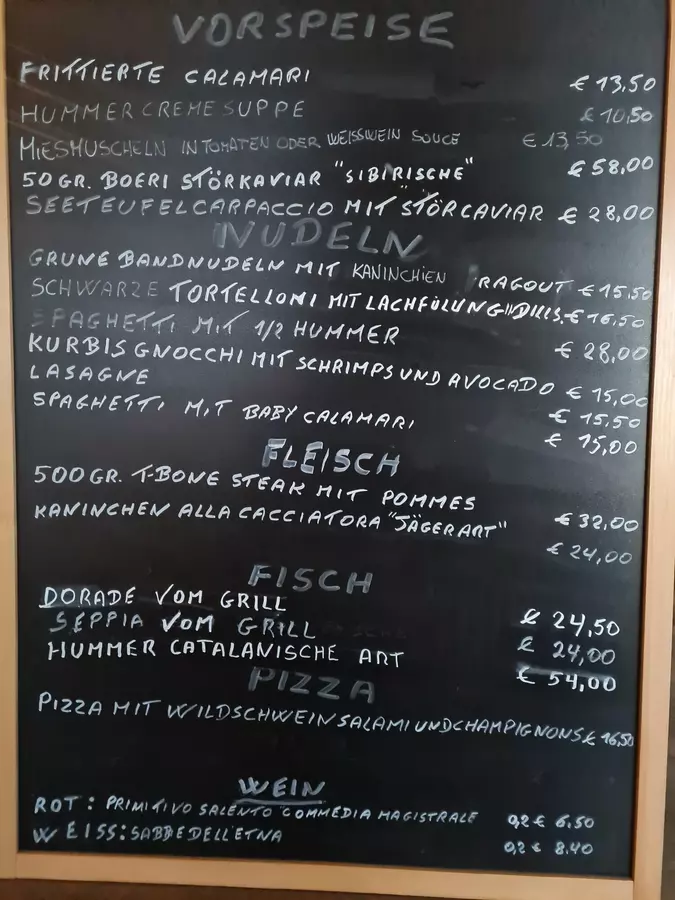 VORSPEISE
FRITTIERTE CALAMARI € 13,50
HUMMERCREMESUPPE € 10,50
MIESMUSCHELN IN TOMATEN ODER WEISSWEIN SOUCE € 13,50
50 GR. BOERI STÖRKAVIAR "SIBIRISCHE" € 58,00
SEETEUFELCARPACCIO MIT STÖRCAVIAR € 28,00
NUDELN
GRUNE BANDNUDELN MIT KANINCHIEN RAGOUT € 15,50
SCHWARZE TORTELLONI MIT LACHFÜLUNG DILLS. € 16,50
SPAGHETTI MIT 1/2 HUMMER € 28,00
KURBIS GNOCCHI MIT SCHRIMPS UND AVOCADO € 15,00
LASAGNE € 15,50
SPAGHETTI MIT BABY CALAMARI € 15,00
FLEISCH
500 GR. T-BONE STEAK MIT POMMES € 32,00
KANINCHEN ALLA CACCIATORA "JÄGERART" € 24,00
FISCH
DORADE VOM GRILL € 24,50
SEPPIA VOM GRILL € 24,00
HUMMER CATALANISCHE ART € 54,00
PIZZA
PIZZA MIT WILDSCHWEINSALAMI UND CHAMPIGNONS € 16,50
WEIN
ROT: PRIMITIVO SALENTO COMMEDIA MAGISTRALE 0,2 € 6.50
WEISS: SABBEDELL'ETNA 0,2 € 8.40